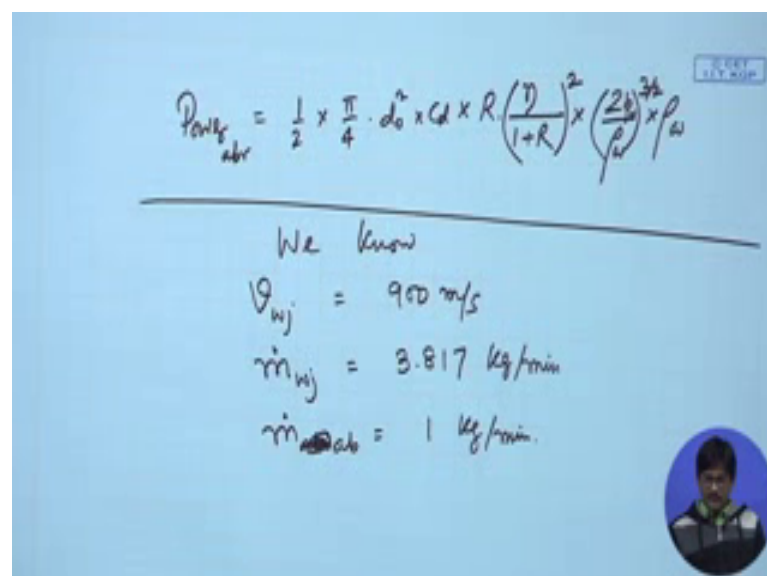 © CET
I.I.T. KGP
Power_abr = 1/2 × π/4 · d₀² × Cd × R · (η/(1+R))² × (2p/ρ_w)^(3/2) × ρ_w
We know
ϑ_wj = 900 m/s
ṁ_wj = 3.817 kg/min
ṁ_ab = 1 kg/min.